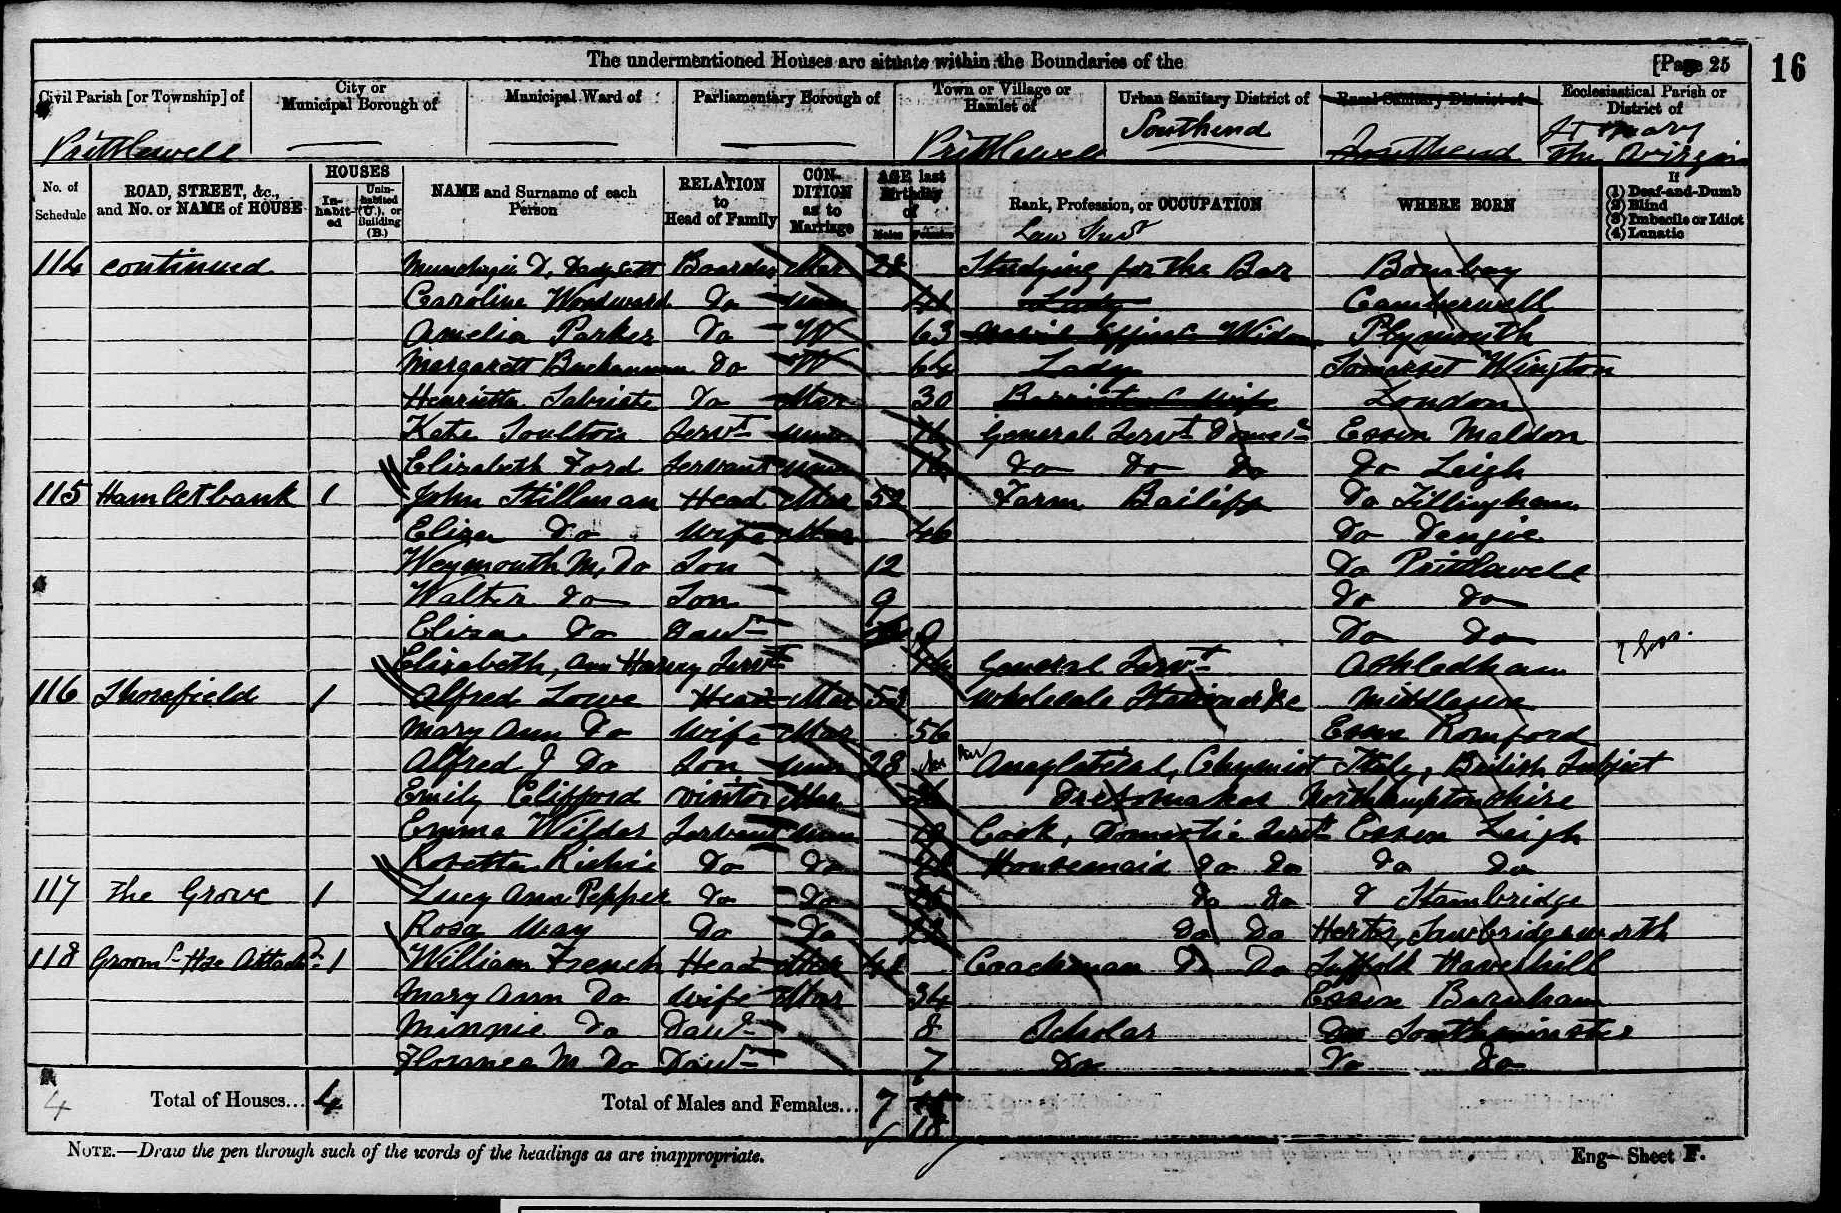 The undermentioned Houses are situate within the Boundaries of the [Page 25 16
Civil Parish [or Township] of City or Municipal Borough of Municipal Ward of Parliamentary Borough of Town or Village or Hamlet of Urban Sanitary District of Rural Sanitary District of Ecclesiastical Parish or District of
Prittlewell Prittlewell Southend Southend St Mary The Virgin
No. of Schedule ROAD, STREET, &c., and No. or NAME of HOUSE HOUSES Inhabited Uninhabited (U.), or Building (B.) NAME and Surname of each Person RELATION to Head of Family CONDITION as to Marriage AGE last Birthday of Males Females Rank, Profession, or OCCUPATION WHERE BORN If (1) Deaf-and-Dumb (2) Blind (3) Imbecile or Idiot (4) Lunatic
114 continued D. Boarder Mar 28 Studying for the Bar Bombay
Caroline Woodward Do Unm Lady Camberwell
Amelia Parker Do W 63 Widow Plymouth
Margarett Buchannan Do W 64 Lady Somerset Wington
Henrietta Do Mar 30 Barristers Wife London
Kate Servt Unm 16 General Servt Domes Essex Maldon
Elizabeth Ford Servant Unm Do Do Do Do Leigh
115 Hamlet bank 1 John Stillman Head Mar 52 Farm Bailiff Do Tillingham
Eliza Do Wife Mar 46 Do Dengie
Weymouth M. Do Son 12 Do Prittlewell
Walter Do Son 9 Do Do
Eliza Do Daur Do Do
Elizabeth, Ann Harvey Servt General Servt Asheldham
116 Shorefield 1 Alfred Lowe Head Mar 53 Wholesale Stationer &c Middlesex
Mary Ann Do Wife Mar 56 Essex Romford
Alfred J Do Son Unm 28 Anaylatical, Chymist Italy, British Subject
Emily Clifford Visitor Mar Dressmaker Northhamptonshire
Emma Wilder Servant Unm Cook, Domestic Servt Essex Leigh
Rosetta Richie Do Do Housemaid Do Do Do Do
117 The Grove 1 Lucy Ann Pepper Do Do Do Do Stambridge
Rosa May Do Do Do Do Herts, Sawbridgeworth
118 Groom's Hse Attachd 1 William French Head Mar 41 Coachman D Do Suffolk Haverhill
Mary Ann Do Wife Mar 34 Essex Burnham
Minnie Do Daur 8 Scholar Do Southminster
Florance M Do Daur 7 Do Do Do
4 Total of Houses... 4 Total of Males and Females... 7 18
NOTE.—Draw the pen through such of the words of the headings as are inappropriate. Eng— Sheet F.